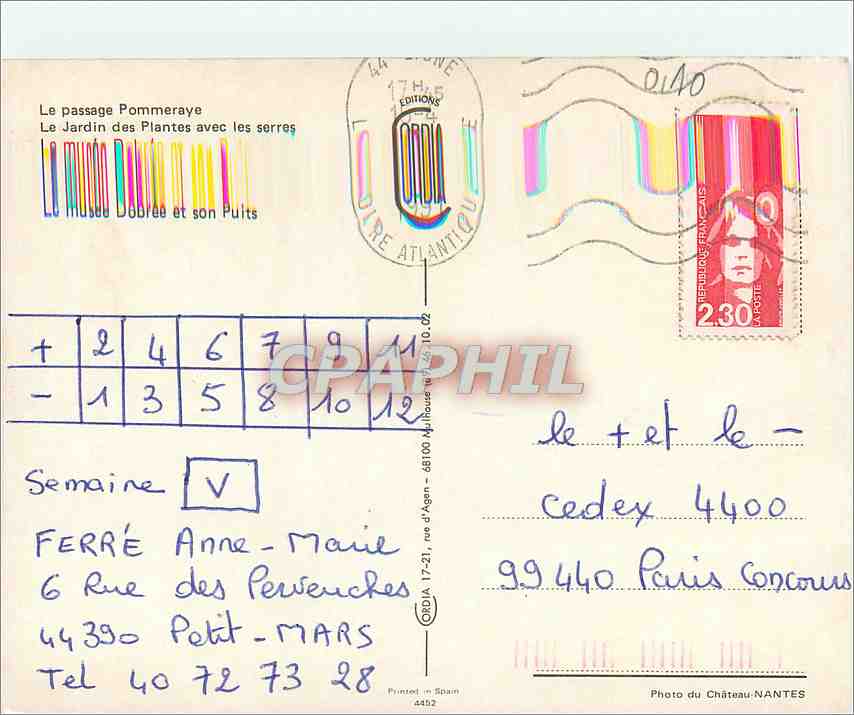 Le passage Pommeraye
Le Jardin des Plantes avec les serres
Le musée Dobrée et son Puits
17H45
EDITIONS
ORDIA
LOIRE ATLANTIQUE
0,10
RÉPUBLIQUE FRANÇAISE
LA POSTE
2,30
+ 2 4 6 7 9 11
- 1 3 5 8 10 12
Semaine V
FERRÉ Anne-Marie
6 Rue des Pervenches
44390 Petit-MARS
Tel 40 72 73 28
ORDIA 17-21, rue d'Agen - 68100 Mulhouse 46.10.02
CPAPHIL
le + et le -
cedex 4400
99440 Paris Concours
Printed in Spain
4452
Photo du Château-NANTES